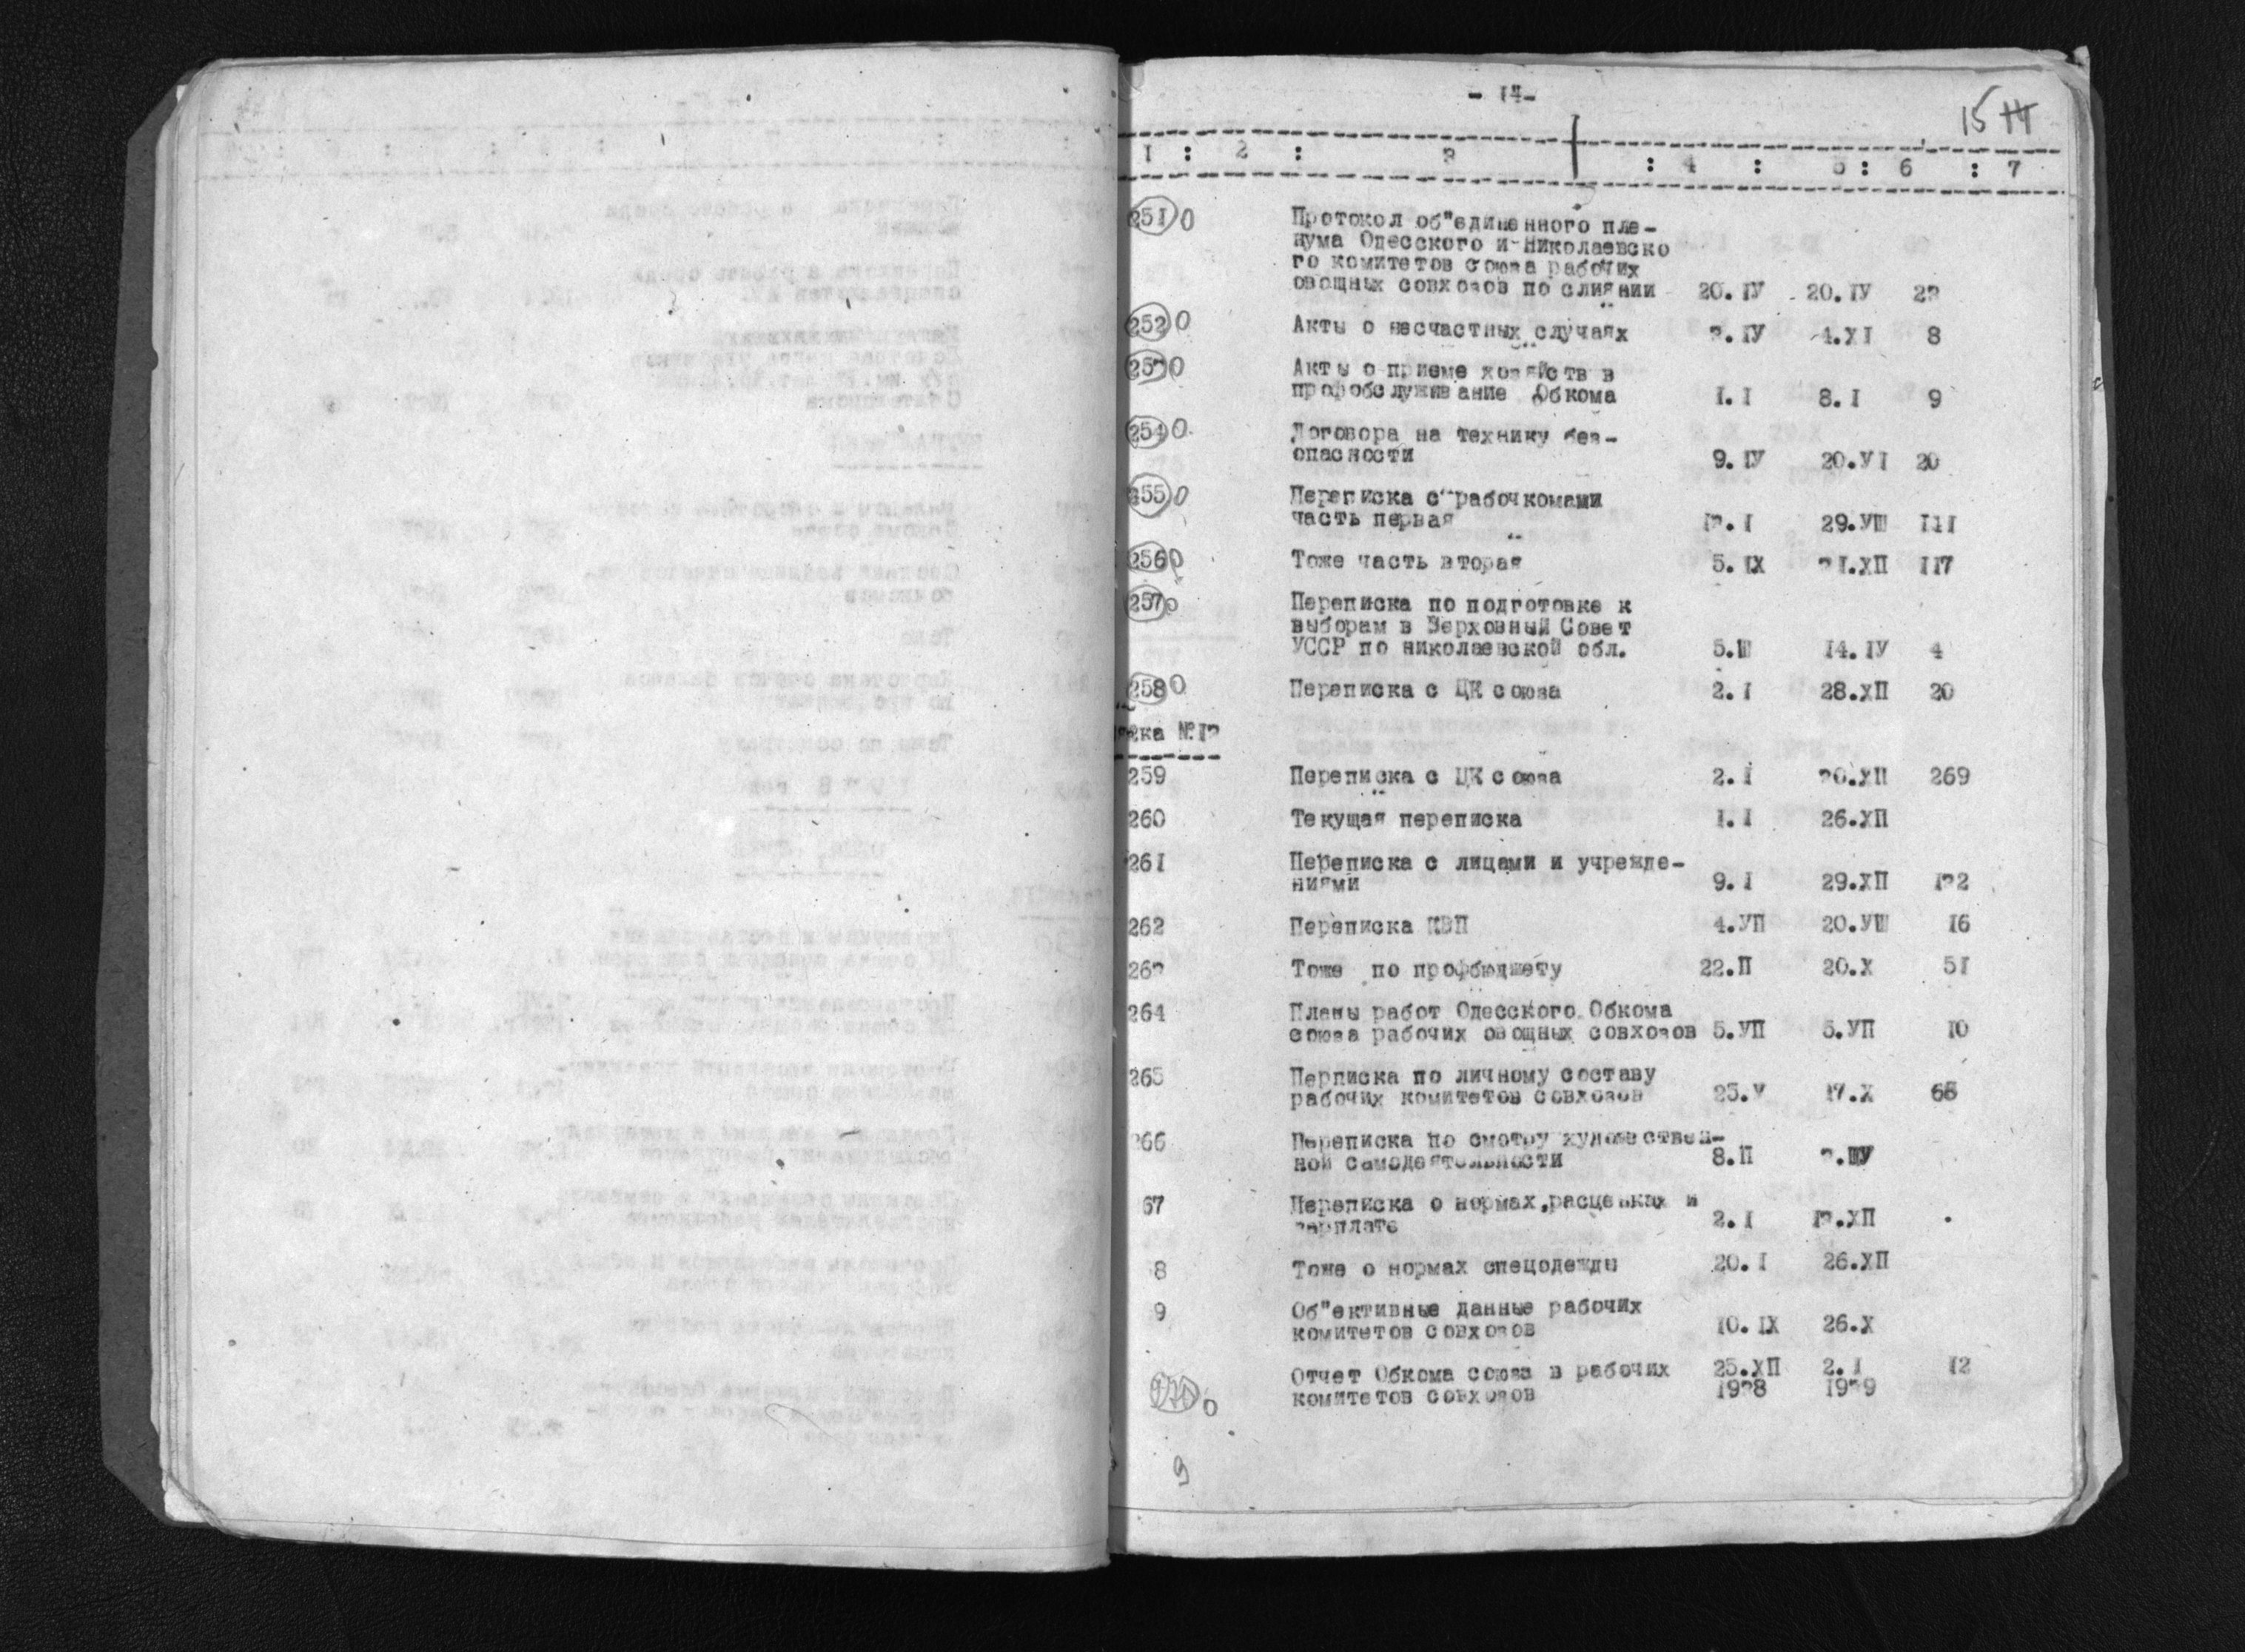 - 14-
15 14
1 : 2 : 3 : 4 : 5 : 6 : 7
251 0 Протокол об"единенного пле-
нума Одесского и Николаевско
го комитетов союза рабочих
овощных совхозов по слиянии 20.IУ 20.IУ 23
252 0 Акты о несчастных случаях 3.IУ 4.XI 8
253 0 Акты о приеме хозяйств в
профобслуживание Обкома I.I 8.I 9
254 0 Договора на технику без-
опасности 9.IУ 20.УI 20
255 0 Переписка с рабочкомами
часть первая 13.I 29.УШ III
256 0 Тоже часть вторая 5.IX 31.ХП II7
257 0 Переписка по подготовке к
выборам в Верховный Совет
УССР по николаевской обл. 5.Ш I4.IУ 4
258 0 Переписка с ЦК союза 2.I 28.ХП 20
язка №I3
259 Переписка с ЦК союза 2.I 30.ХП 269
260 Текущая переписка I.I 26.ХП
261 Переписка с лицами и учрежде-
ниями 9.I 29.ХП I32
262 Переписка КВП 4.УП 20.УШ I6
263 Тоже по профбюджету 22.П 20.Х 5I
264 Планы работ Одесского Обкома
союза рабочих овощных совхозов 5.УП 5.УП I0
265 Перписка по личному составу
рабочих комитетов совхозов 25.У I7.Х
266 Переписка по смотру художествен-
ной самодеятельности 8.П
67 Переписка о нормах,расценках и
зарплате 2.I I3.ХП
8 Тоже о нормах спецодежды 20.I 26.ХП
9 Об"ективные данные рабочих
комитетов совхозов I0.IX 26.Х
270 0 Отчет Обкома союза в рабочих 25.ХП 2.I I2
комитетов совхозов I938 I939
9